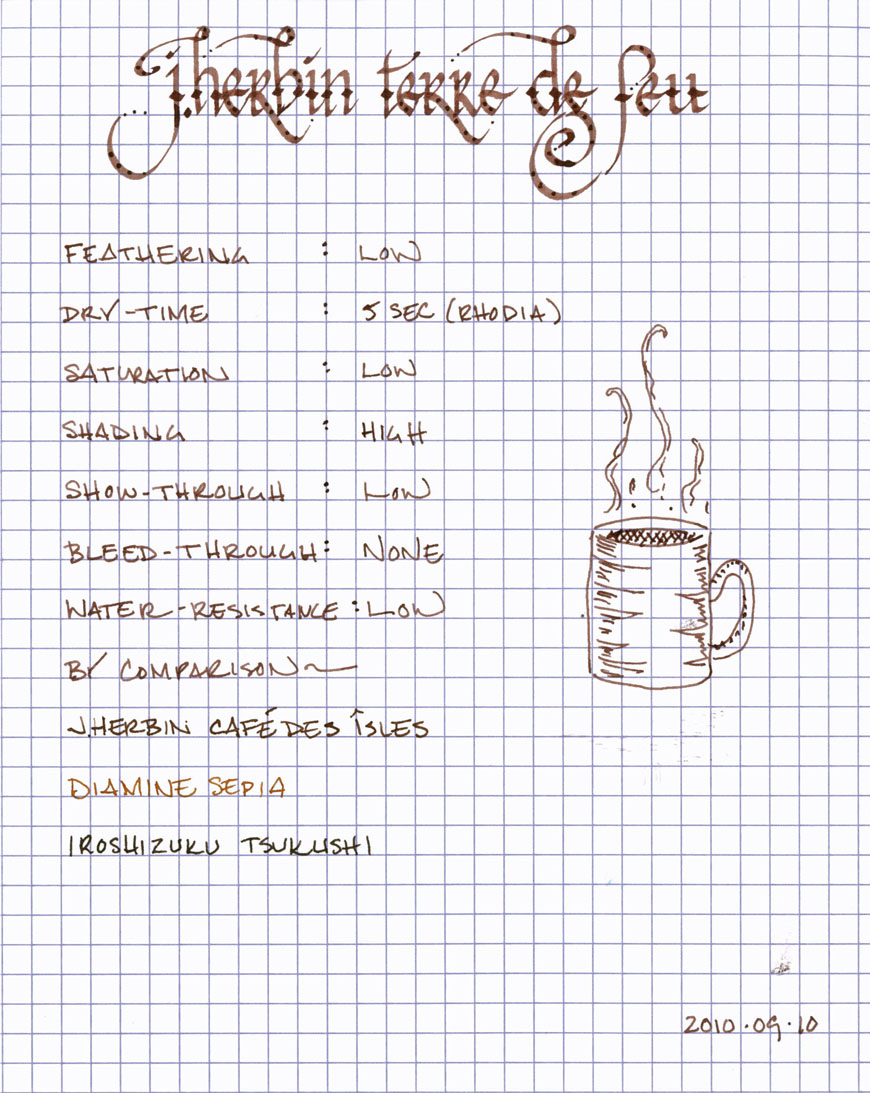 j.herbin terre de feu
FEATHERING : LOW
DRY-TIME : 5 SEC (RHODIA)
SATURATION : LOW
SHADING : HIGH
SHOW-THROUGH : LOW
BLEED-THROUGH: NONE
WATER-RESISTANCE : LOW
BY COMPARISON~
J.HERBIN CAFÉ DES ÎSLES
DIAMINE SEPIA
IROSHIZUKU TSUKUSHI
2010.09.10